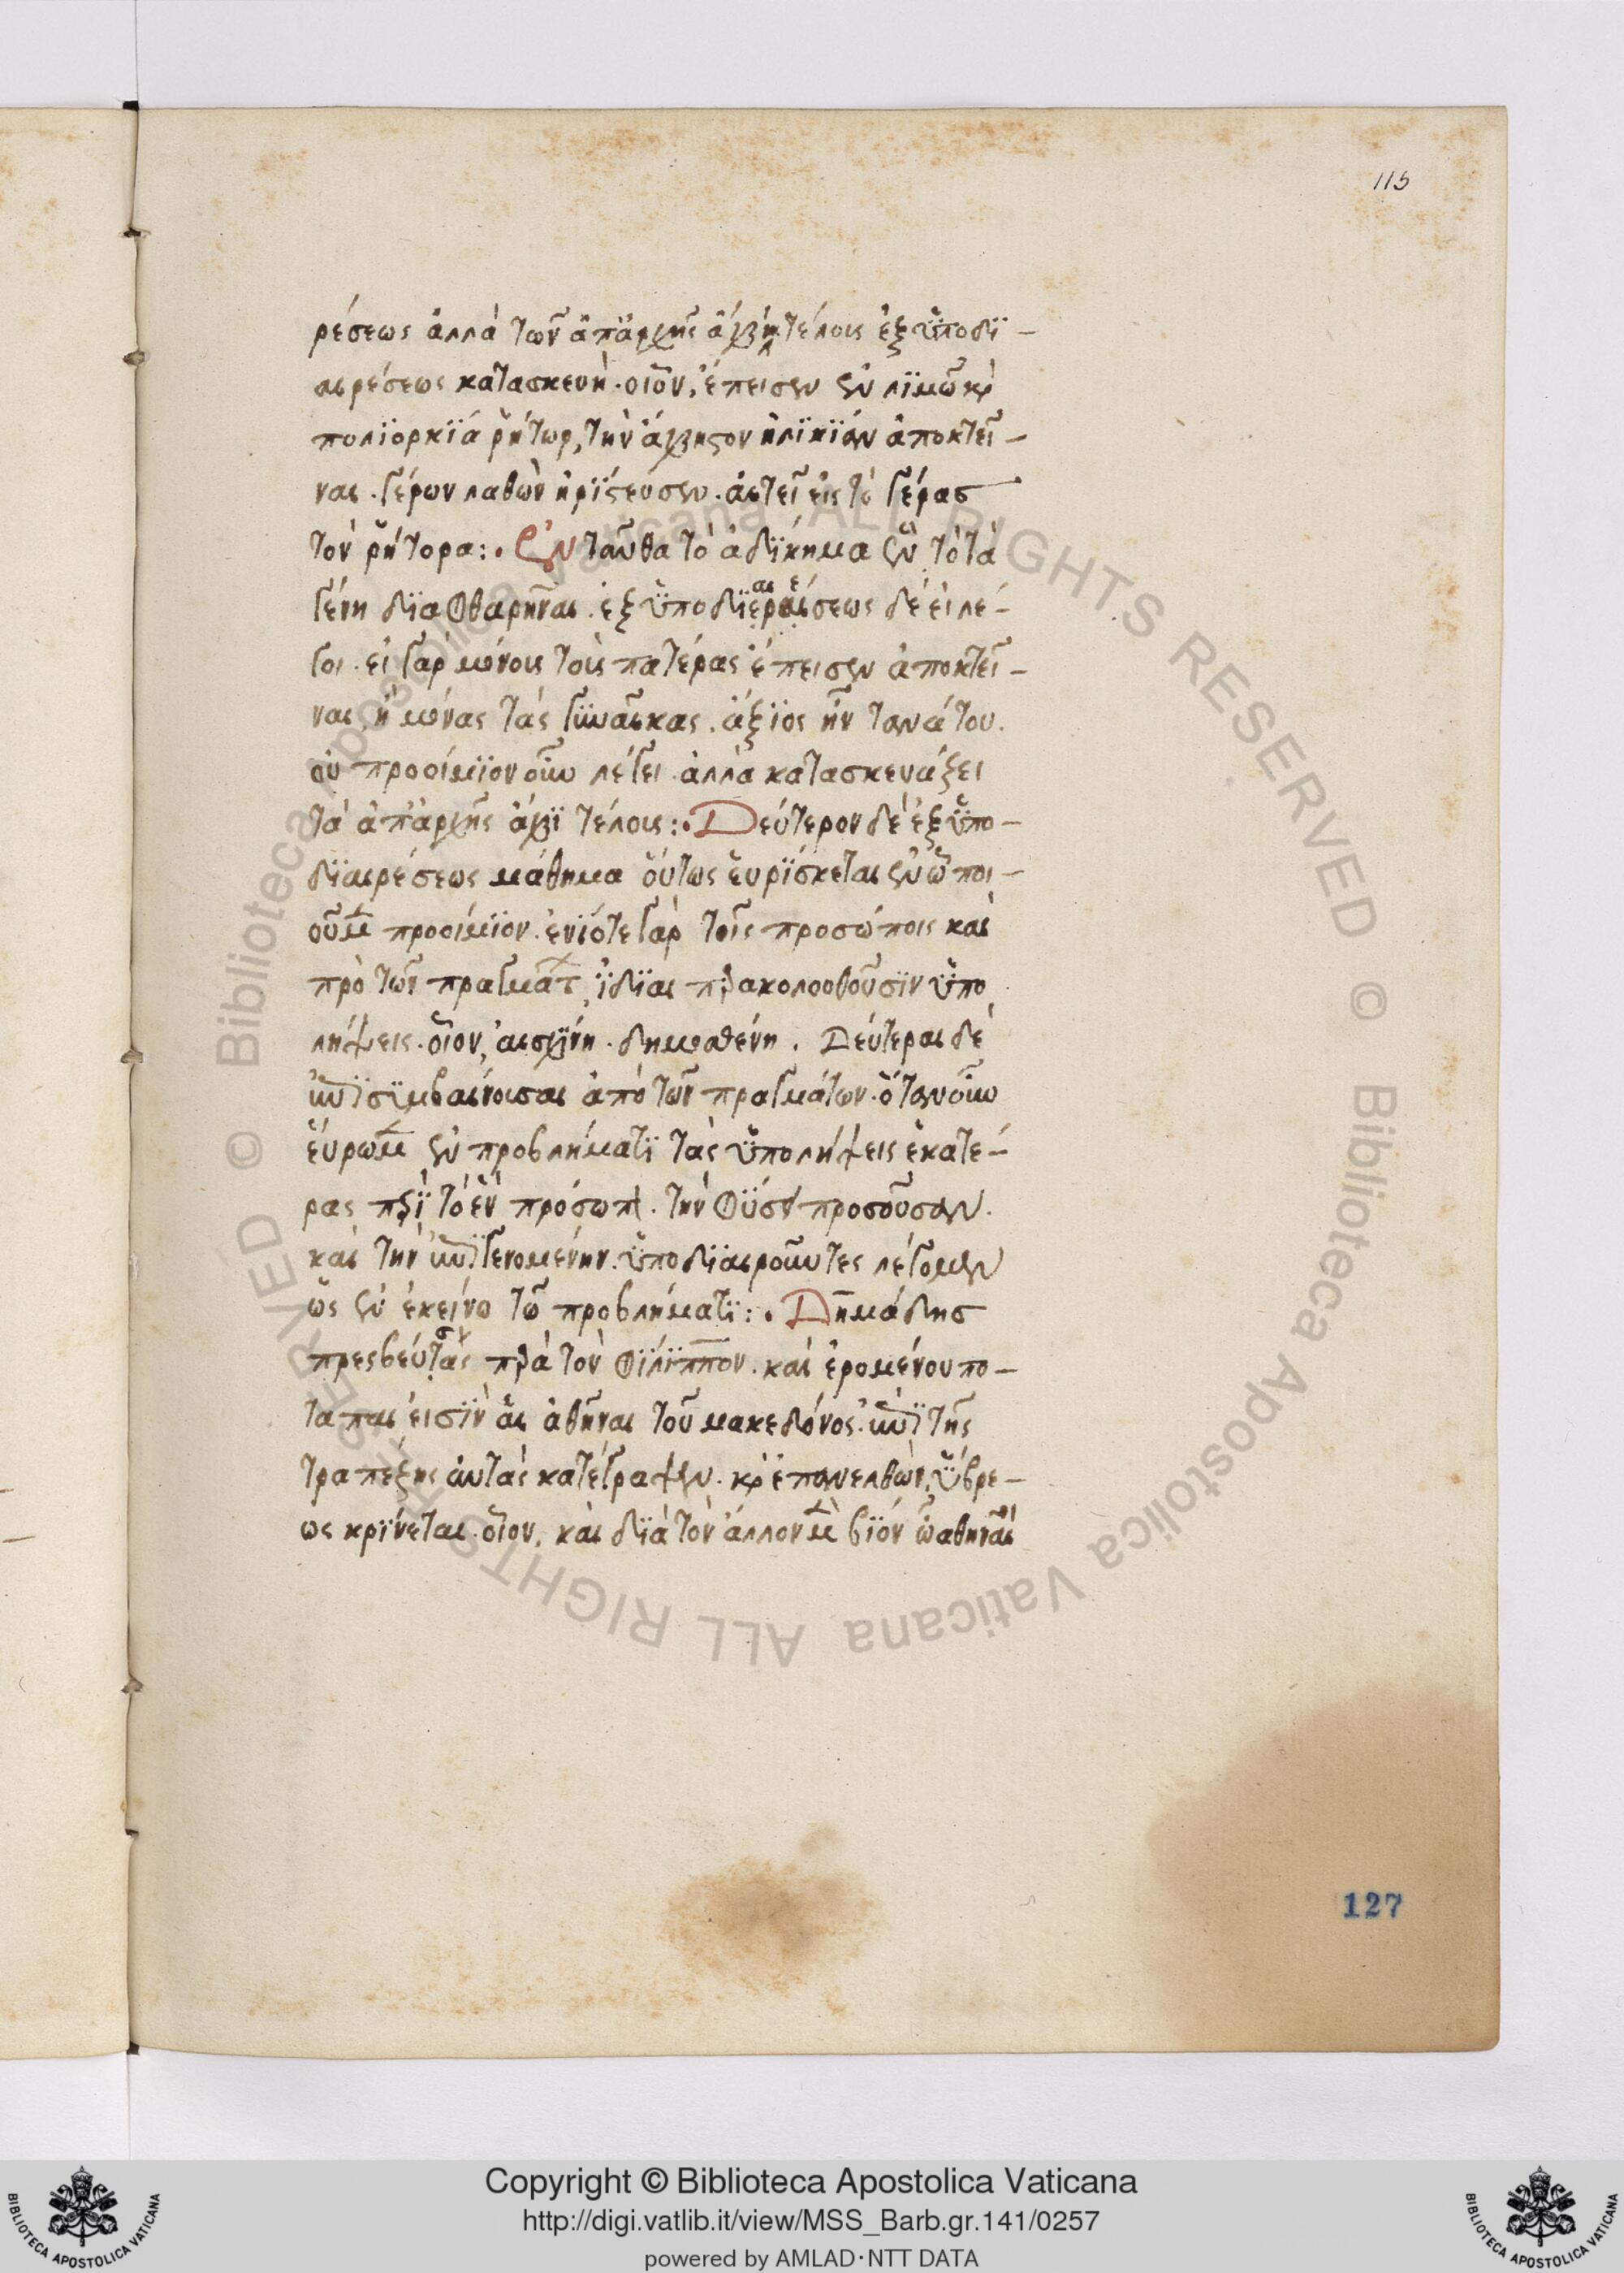 115
ρέσεως ἀλλὰ τῶν ἀπ' ἀρχῆς ἄχρι τέλους ἐξ ὑποδι-
αιρέσεως κατασκευή. οἷον, ἔπεισεν ἐν λιμῶ κὶ
πολιορκία ῥήτωρ, τὴν ἄχρηστον ἡλικίαν ἀποκτεῖ-
ναι. γέρων λαθὼν ἠρίστευσεν. αἰτεῖ εἰς τὸ γέρας
τὸν ῥήτορα:. Ἐνταῦθα τὸ ἀδίκημα ἓν τὸ τὰ
γένη διαφθαρῆναι. ἐξ ὑποδιαιρέσεως δὲ εἰ λέ-
γοι. εἰ γὰρ μόνους τοὺς πατέρας ἔπεισεν ἀποκτεῖ-
ναι, ἢ μόνας τὰς γυναῖκας. ἄξιος ἦν τανάτου.
οὐ προοίμιον οὖν λέγει. ἀλλὰ κατασκευάζει
τὰ ἀπ' ἀρχῆς ἄχρι τέλους:. Δεύτερον δὲ ἐξ ὑπο-
διαιρέσεως μάθημα οὕτως εὑρίσκεται ἐν ὧ ποι-
οῦμεν προοίμιον. ἐνίοτε γὰρ τοῖς προσώποις καὶ
πρὸ τῶν πραγμάτων ἰδίαι παρακολουθοῦσιν ὑπο
λήψεις. οἷον, αἰσχίνη. δημοσθένη. Δεύτεραι δὲ
ἀπὸ τῶν πραγμάτων. ὅταν οὖν
εὕρωμεν ἐν προβλήματι τὰς ὑπολήψεις ἑκατέ-
ρας περὶ τὸ ἓν πρόσωπον. τὴν φύσει προσοῦσαν.
καὶ τὴν γενομένην. ὑποδιαιροῦντες λέγομεν
ὡς ἐν ἐκείνω τῶ προβλήματι:. Δημάδης
παρὰ τὸν φίλιππον. καὶ ἐρομένου πο-
ταπαί εἰσιν αἱ ἀθῆναι τοῦ μακεδόνος. τῆς
τραπέζης αὐτὰς κατέγραψεν. κὶ ἐπανελθὼν, ὕβρε-
ως κρίνεται. οἷον, καὶ διὰ τὸν ἄλλον μὲν βίον ὦ ἀθηναῖοι
127
Copyright © Biblioteca Apostolica Vaticana
http://digi.vatlib.it/view/MSS_Barb.gr.141/0257
powered by AMLAD·NTT DATA